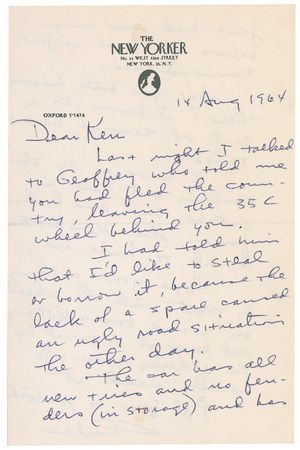 THE
NEW YORKER
No. 25 WEST 43RD STREET
NEW YORK, 36, N.Y.
OXFORD 5-1414
14 Aug 1964
Dear Ken
Last night I talked
to Geoffrey who told me
you had fled the coun-
try, leaving the 35C
wheel behind you.
I had told him
that I'd like to steal
or borrow it, because the
lack of a spare caused
an ugly road situation
the other day.
The car has all
new tires and no fen-
ders (in storage) and has